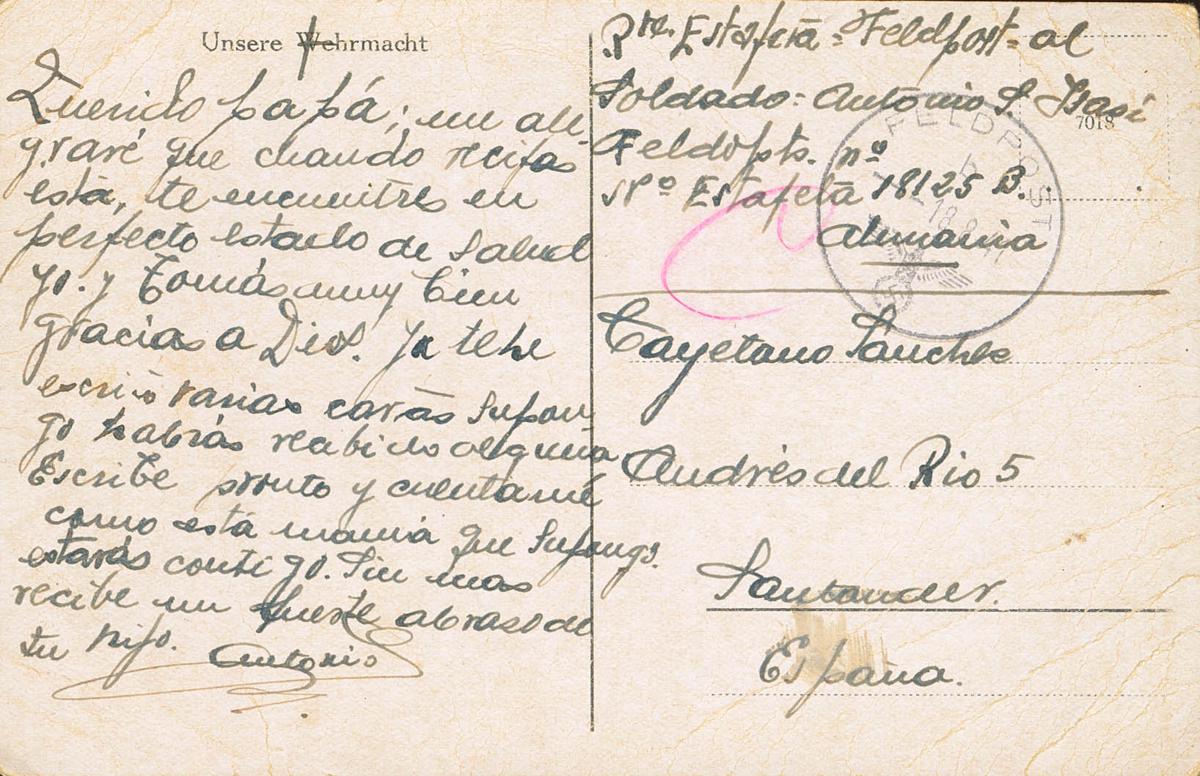 Unsere Wehrmacht
Querido papá; me ale-
graré que cuando recibas
esta, te encuentres en
perfecto estado de salud
yo. y Tomás muy bien
gracias a Dios. Ya te he
escrito varias cartas supon
go habrás recibido alguna
Escribe pronto y cuentame
como está mamá que supongo
estarás contigo. Sin mas
recibe un fuerte abraso de
tu hijo. Antonio
Rte. Estafeta = Feldpost = al
Soldado: Antonio S.
7018
Feldpts. nº
Nº Estafeta 18125 B.
Alemania
FELDPOST
Cayetano Sanchez
Andrés del Rio 5
Santander.
España.